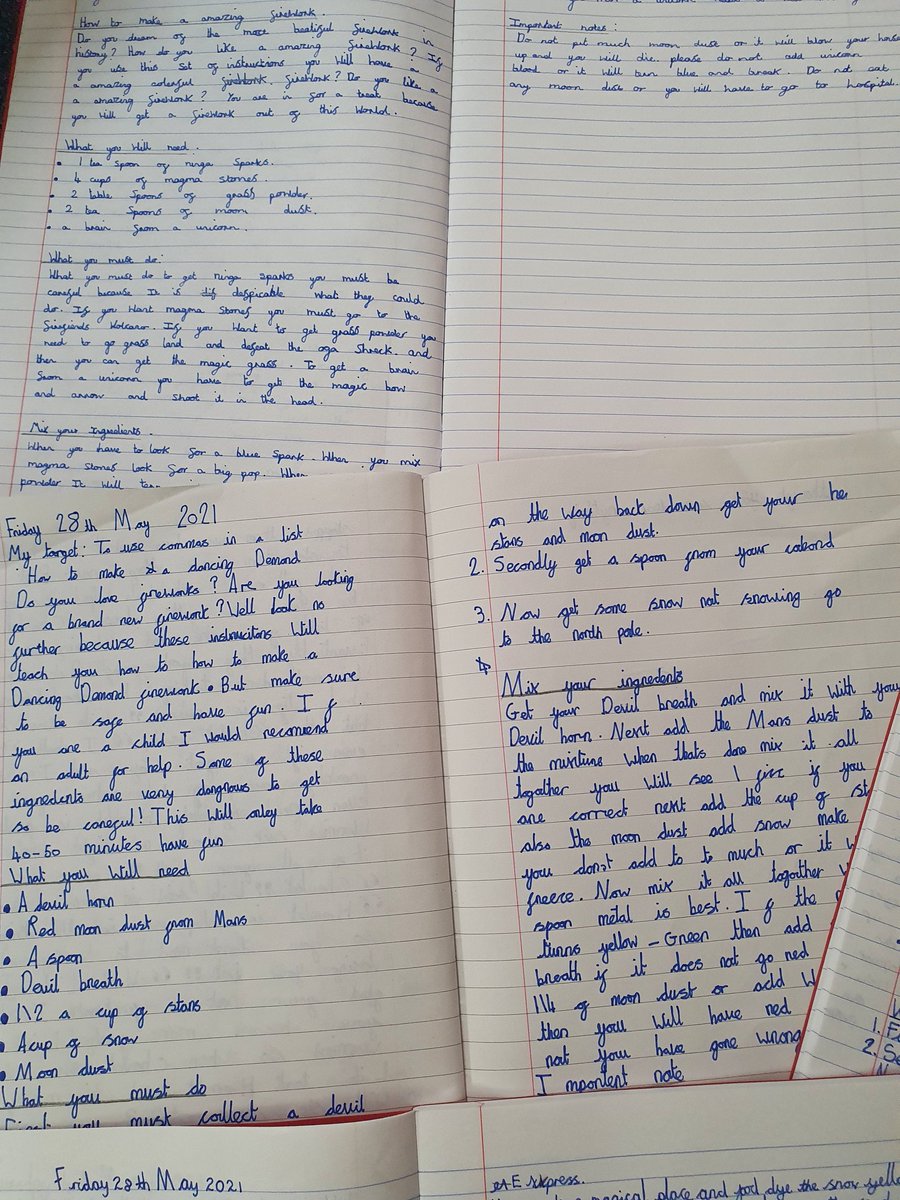 How to make a amazing firework.
Do you dream of the most beatiful firework in
history? How do you like a amazing firework? If
you use this set of instructions you will have a
a amazing colerful firework. firework? Do you like a
a amazing firework? You are in for a treat because
you will get a firework out of this world.
What you will need.
• 1 tea spoon of ninga sparks.
• 4 cups of magma stones.
• 2 table spoons of grass powder.
• 2 tea spoons of moon dust.
• a brain from a unicorn.
What you must do:
What you must do to get ninga sparks you must be
careful because It is despicable what they could
do. If you want magma stones you must go to the
Volcano. If you want to get grass powder you
need to go grass land and defeat the oga Shreck. and
then you can get the magic grass. To get a brain
from a unicorn you have to get the magic bow
and arrow and shoot it in the head.
Mix your Ingredients.
When you have to look for a blue spark. When you mix
magma stones look for a big pop. When
powder It will
Important notes:
Do not put much moon dust or it will blow your house
up and you will die. please do not add unicorn
blood or it will turn blue and break. Do not eat
any moon dust or you will have to go to hospital.
Friday 28th May 2021
My target: To use commas in a list
How to make a dancing Demond
Do you love fireworks? Are you looking
for a brand new firework? Well look no
further because these instrucitons will
teach you how to how to make a
Dancing Demond firework. But make sure
to be safe and have fun. If
you are a child I would recomend
an adult for help. Some of these
ingredents are very dangrous to get
so be careful! This will onley take
40-50 minutes have fun
What you will need
• A devil horn
• Red moon dust from Mars
• A spoon
• Devil breath
• 1\2 a cup of stars
• A cup of snow
• Moon dust
What you must do
First you must collect a devil
on the way back down get your
stars and moon dust.
2. Secondly get a spoon from your cobord
3. Now get some snow not snowing go
to the north pole.
4
Mix your ingredents
Get your Devil breath and mix it with your
Devil horn. Next add the Mars dust to
the mixture when thats done mix it all
together you will see 1 fire if you
are correct next add the cup of
also the moon dust add snow make
you don't add to to much or it
freeze. Now mix it all togather
spoon metal is best. If the
turns yellow - Green then add
breath if it does not go red
1\4 of moon dust or add
then you will have red
not you have gone wrong
Importent note
1.
2.
Friday 28th May 2021
Express.
magical place and food dye the snow